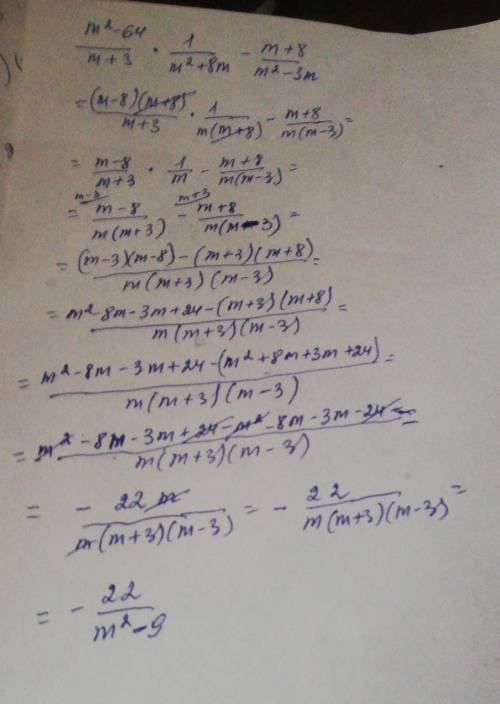 m²-64/m+3 · 1/m²+8m - m+8/m²-3m
= (m-8)(m+8)/m+3 · 1/m(m+8) - m+8/m(m-3) =
= m-8/m+3 · 1/m - m+8/m(m-3) =
= m-3 m-8/m(m+3) - m+3 m+8/m(m-3) =
= (m-3)(m-8)-(m+3)(m+8)/m(m+3)(m-3) =
= m²-8m-3m+24-(m+3)(m+8)/m(m+3)(m-3) =
= m²-8m-3m+24-(m²+8m+3m+24)/m(m+3)(m-3) =
= m²-8m-3m+24-m²-8m-3m-24/m(m+3)(m-3) =
= - 22m/m(m+3)(m-3) = - 22/m(m+3)(m-3) =
= - 22/m²-9